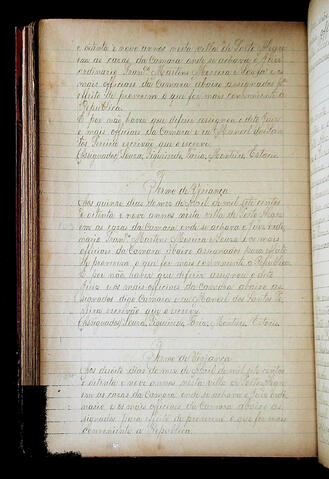 e oitenta e nove annos nesta villa de Porto Alegre
em as casas da Camara onde se achava o Juiz
ordinario Franco Martins Moreira e Souza e os
mais officiais da Camara abaixo assignados pa
effeito de proverem o que for mais conveniente a
Republica.
E por não haver que deferir assignou o dito Juiz
e mais officiais da Camara e eu Manoel dos San
tos Pereira escrivão que o escrevy.
Assignados Souza, Siqueira, Faria, Monteiro,
Termo de Vereança
Aos quinze dias do mez de Abril de mil sete centos
e oitenta e nove annos nesta villa de Porto Alegre
em as casas da Camara onde se achava o Juiz ordi
nario Franco Martins Moreira e Souza e os mais
officiais da Camara abaixo assignados para effeito
de proverem o que for mais conveniente a Republica
E por não haver que deferir assignou o dito
Juiz e os mais officiais da Camara abaixo as
signados digo Camara e eu Manoel dos Santos Pe
reira escrivão que o escrevy.
Assignados Souza, Siqueira, Faria, Monteiro,
Termo de Vereança
Aos dezoito dias do mez de Abril de mil sete centos
e oitenta e nove annos nesta villa de Porto Alegre
em as casas da Camara onde se achava o Juiz ordi
nario e os mais officiais da Camara abaixo as
signados para effeito de proverem o que for mais
conveniente a Republica.